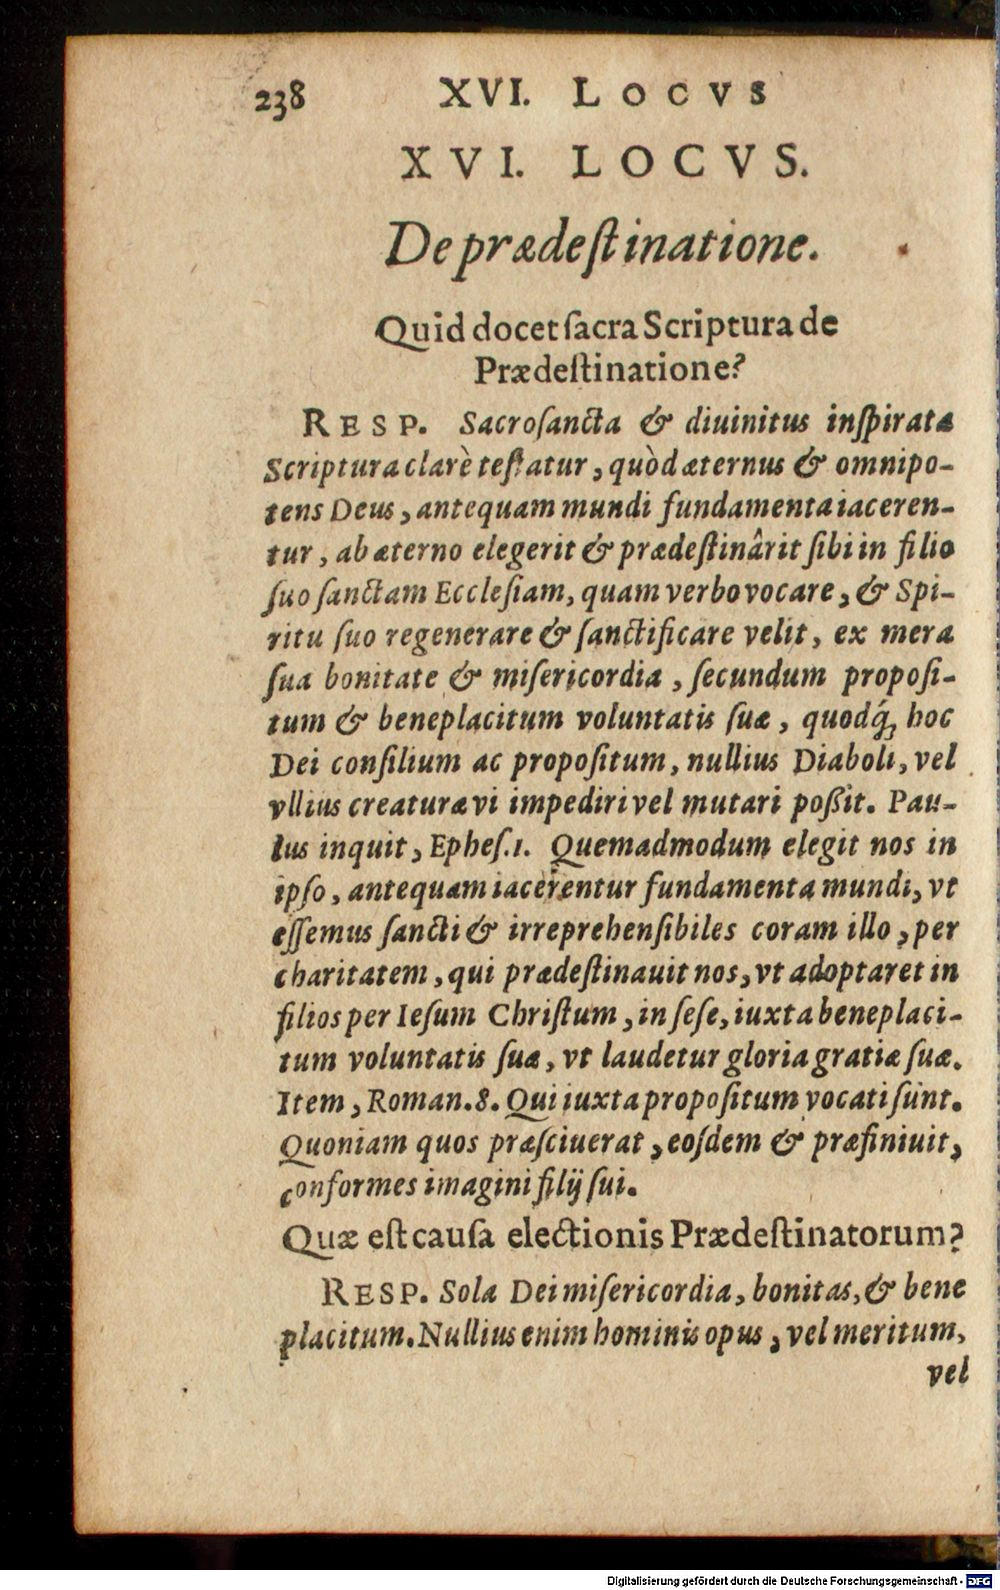 238 XVI. Locvs
XVI. LOCVS.
De prædeſtinatione.
Quid docet ſacra Scriptura de
Prædeſtinatione?
RESP. Sacroſancta & diuinitus inſpirata
Scriptura clarè teſtatur, quòd æternus & omnipo-
tens Deus, antequam mundi fundamenta iaceren-
tur, ab æterno elegerit & prædeſtinârit ſibi in filio
ſuo ſanctam Eccleſiam, quam verbo vocare, & Spi-
ritu ſuo regenerare & ſanctificare velit, ex mera
ſua bonitate & miſericordia, ſecundum propoſi-
tum & beneplacitum voluntatis ſuæ, quodq́; hoc
Dei conſilium ac propoſitum, nullius Diaboli, vel
vllius creaturæ vi impediri vel mutari poßit. Pau-
lus inquit, Epheſ.1. Quemadmodum elegit nos in
ipſo, antequam iacerentur fundamenta mundi, vt
eſſemus ſancti & irreprehenſibiles coram illo, per
charitatem, qui prædeſtinauit nos, vt adoptaret in
filios per Ieſum Chriſtum, in ſeſe, iuxta beneplaci-
tum voluntatis ſuæ, vt laudetur gloria gratiæ ſuæ.
Item, Roman.8. Qui iuxta propoſitum vocati ſunt.
Quoniam quos præſciuerat, eoſdem & præfiniuit,
conformes imagini filij ſui.
Quæ eſt cauſa electionis Prædeſtinatorum?
RESP. Sola Dei miſericordia, bonitas, & bene
placitum. Nullius enim hominis opus, vel meritum,
vel
Digitalisierung gefördert durch die Deutsche Forschungsgemeinschaft - DFG